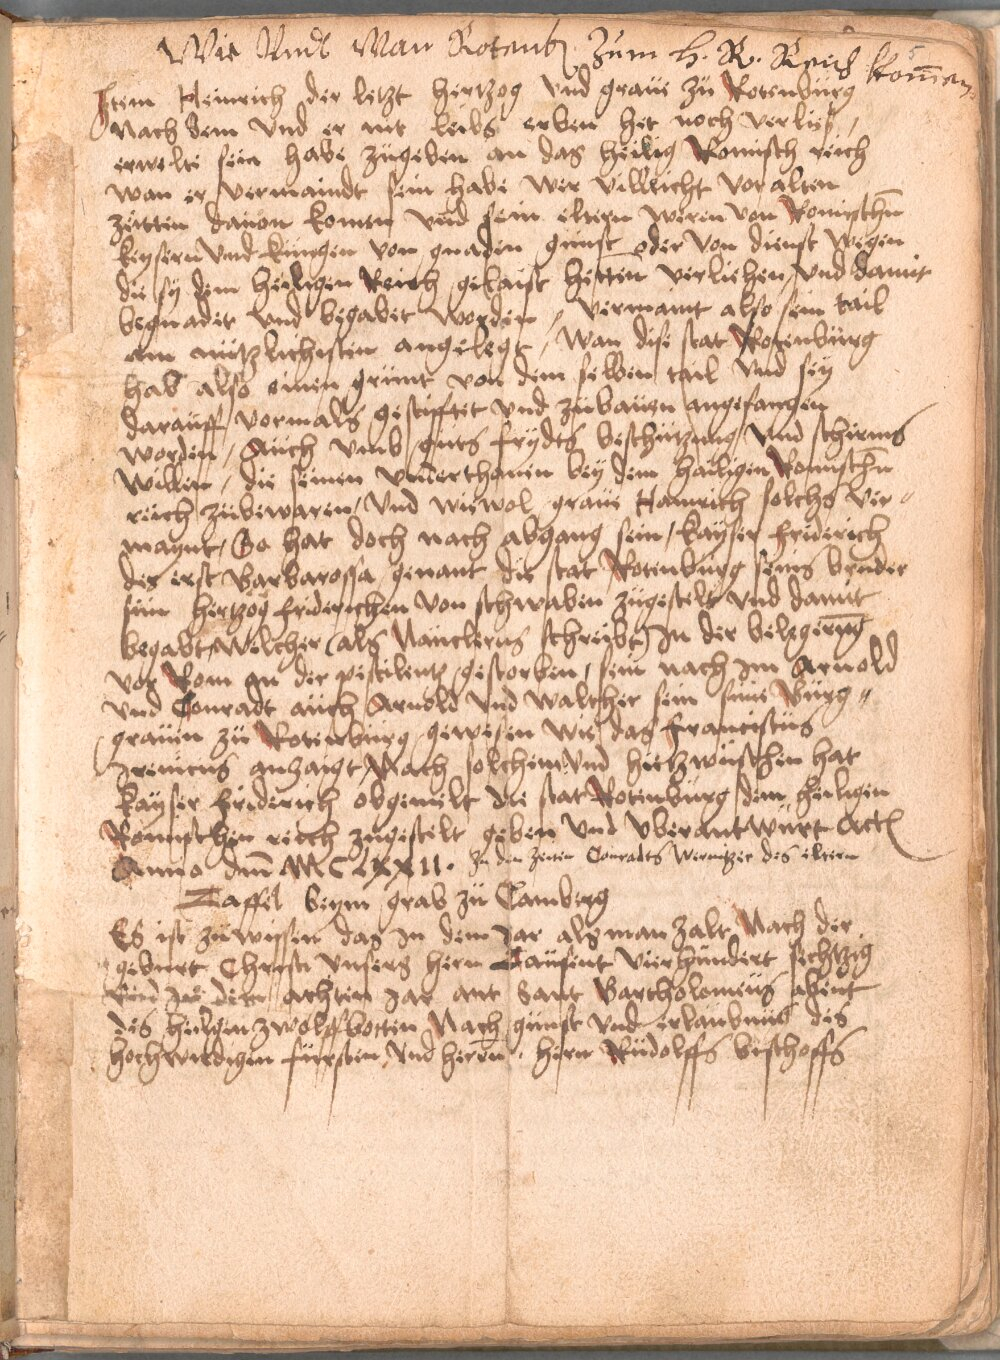 Wie Undt Wan Rotenb: Zum H. R. Reich komen.
Item Heinrich der letzt hertzog vnd graue zu Rotenburg
Nach dem vnd er nit leibs erben het noch verlies,
erwelte sein habe zugeben an das heilig Romisch reich
wan er vermaindt sein habe wer villeicht vor alten
zeitten dauon komen vnd sein eltern weren von Romischen
keysern vnd kungen von gnaden gunst oder von dienst wegen
die sy dem heiligen Reich gelaist hetten verliehen, vnd damit
begnadet vnd begabet worden, vermaint also sein tail
am nutzlichisten angelegt, Wan dise stat Rotenburg
hab also einen grunt von dem selben tail vnd sey
darauff vormals gestifftet vnd zubauen angefangen
worden, Auch vmb guts frydts beschutzung vnd schirms
willen, die seinen vnderthanen bey dem hailigen Romischen
reich zubewaren, Vnd wiewol graue Hainrich solchs ver=
maynt, So hat doch nach abgang sein, kayser friderich
der erst Barbarossa genant die stat Rotenburg seins bruder
sun hertzog friderichen von schwaben zugestelt vnd damit
begabt, Welcher (als Nauclerus schreibt) In der belegerung
vor Rom an der pestilentz gestorben, sein nach im Arnold
vnd Conradt auch Arnold vnd Walther sein sune Burg=
grauen zu Rotenburg gewesen wie das franciscus
Irenicus anzaigt, Nach solchem vnd hiezwuschen hat
kayser friderich obgemelt die stat Rotenburg dem heiligen
Romischen reich zugestelt geben vnd vberantwurt Act:
Anno dni MCLXXII. zu den zeiten Conradts Wernitzer des eltern
Taffel beym grab zu Camberg
Es ist zuwissen das In dem Jar als man zalt Nach der
geburt Christi vnsers hern Tausent vierhundert sechtzig
vnd In dem achten Jar ant Sant Bartholomeus abent
des heilgen zwolffbotten Nach gunst vnd erlaubnus des
hochwirdigen fursten vnd herrn, hern Rudolffs bischoffs